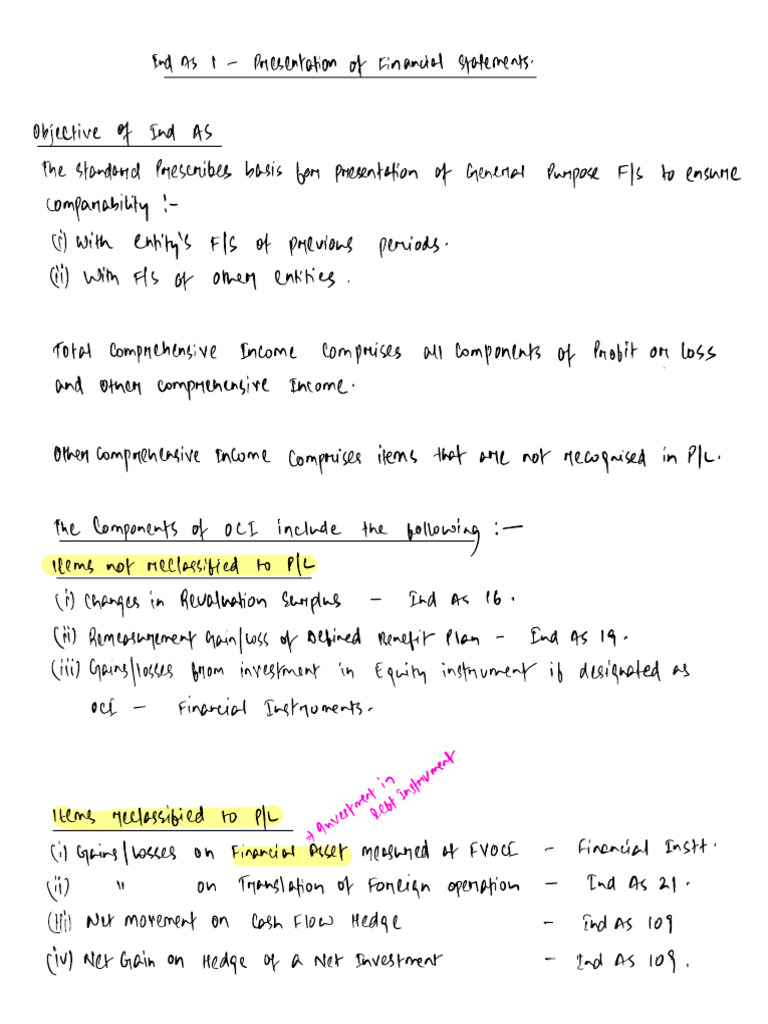 Ind AS 1 - Presentation of Financial Statements.
Objective of Ind AS
The Standard Prescribes basis for presentation of General Purpose F/S to ensure
comparability :-
(i) With entity's F/S of previous periods.
(ii) With F/S of other entities.
Total Comprehensive Income comprises all components of Profit or loss
and other comprehensive Income.
Other Comprehensive Income comprises items that are not recognised in P/L.
The Components of OCI include the following :-
Items not reclassified to P/L
(i) Changes in Revaluation Surplus - Ind AS 16.
(ii) Remeasurement Gain/Loss of Defined Benefit Plan - Ind AS 19.
(iii) Gains/losses from investment in Equity instrument if designated as
OCI - Financial Instruments.
→ Investment in
Debt Instrument
Items reclassified to P/L
(i) Gains/Losses on Financial Asset measured at FVOCI - Financial Instt.
(ii) " on Translation of Foreign operation - Ind AS 21.
(iii) Net movement on Cash Flow Hedge - Ind AS 109
(iv) Net Gain on Hedge of a Net Investment - Ind AS 109.